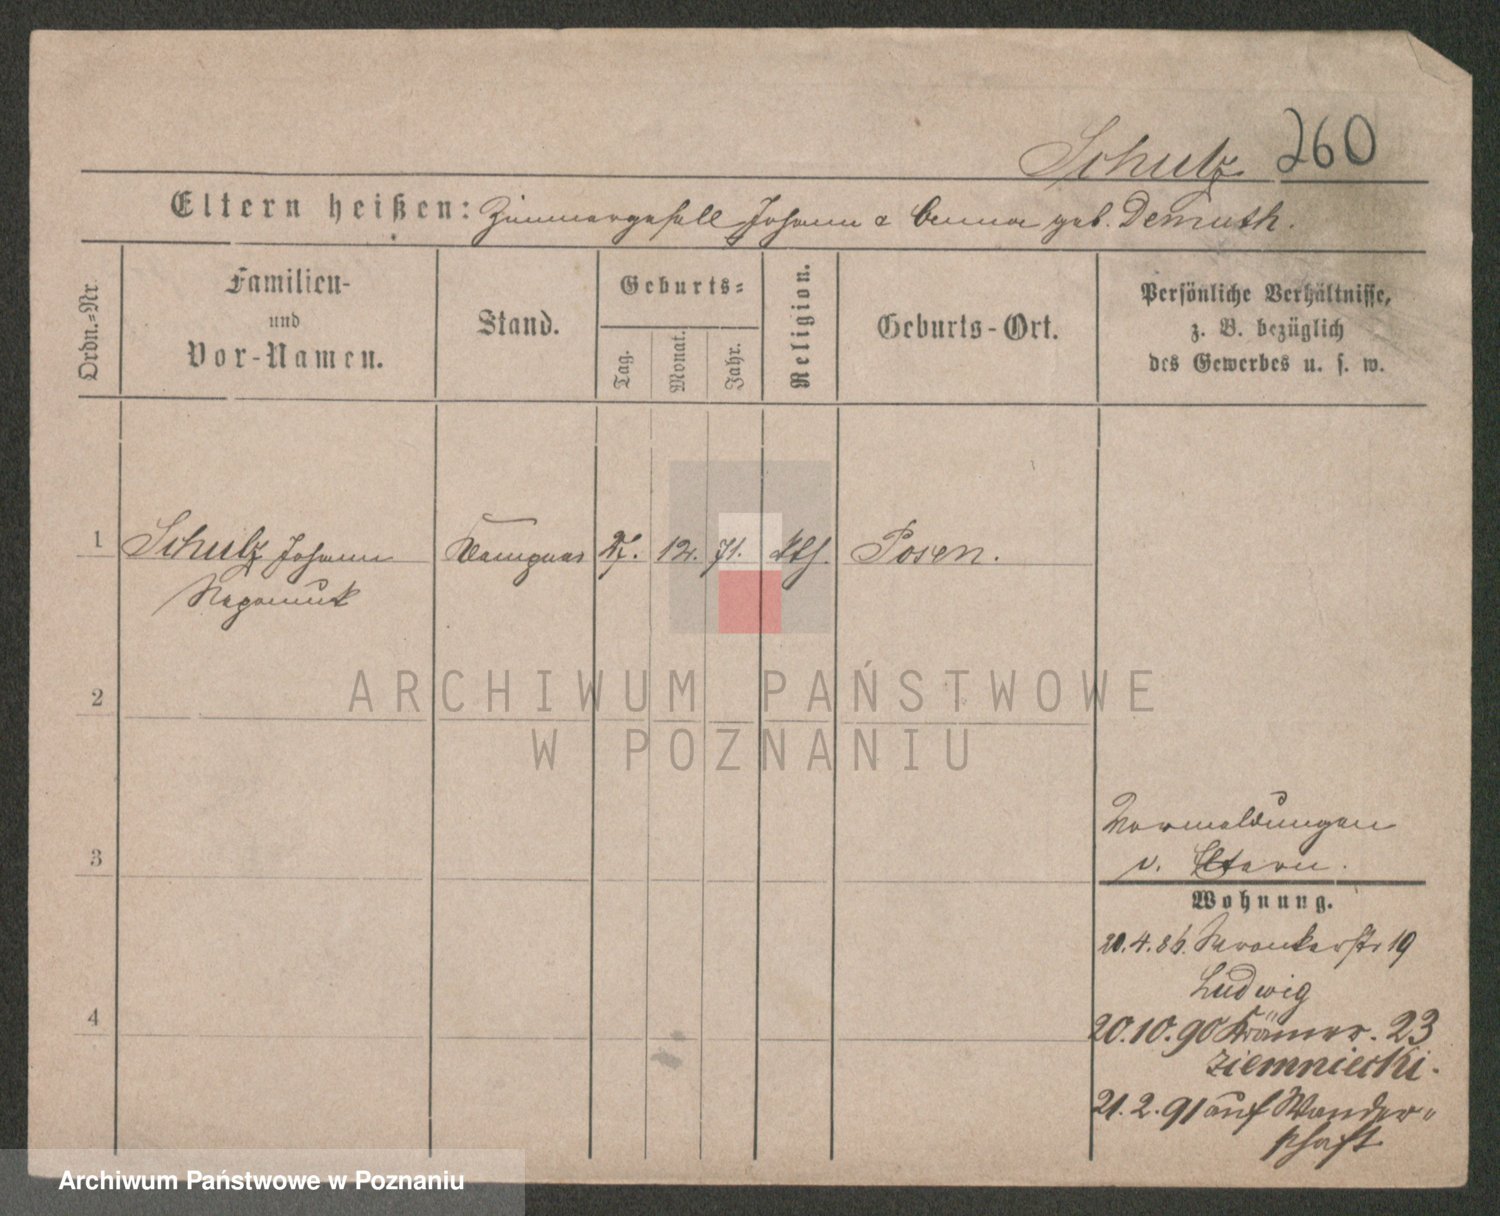 Schulz 260
Eltern heißen: Zimmergesell Johann & Anna geb. Demuth.
Ordn.-Nr.
Familien-
und
Vor-Namen.
Stand.
Geburts-
Tag. Monat. Jahr.
Religion.
Geburts-Ort.
Persönliche Verhältnisse,
z. B. bezüglich
des Gewerbes u. s. w.
1 Schulz Johann 27. 12. 71. kth. Posen.
Nepomuk
2
ARCHIWUM PAŃSTWOWE
W POZNANIU
3
4
Vormeldungen
v. Eltern.
Wohnung.
20.4.86. Wronkerstr 19
Ludwig
20.10.90 Krämer. 23
Ziemniecki.
21.2.91 auf Wander-
schaft
Archiwum Państwowe w Poznaniu